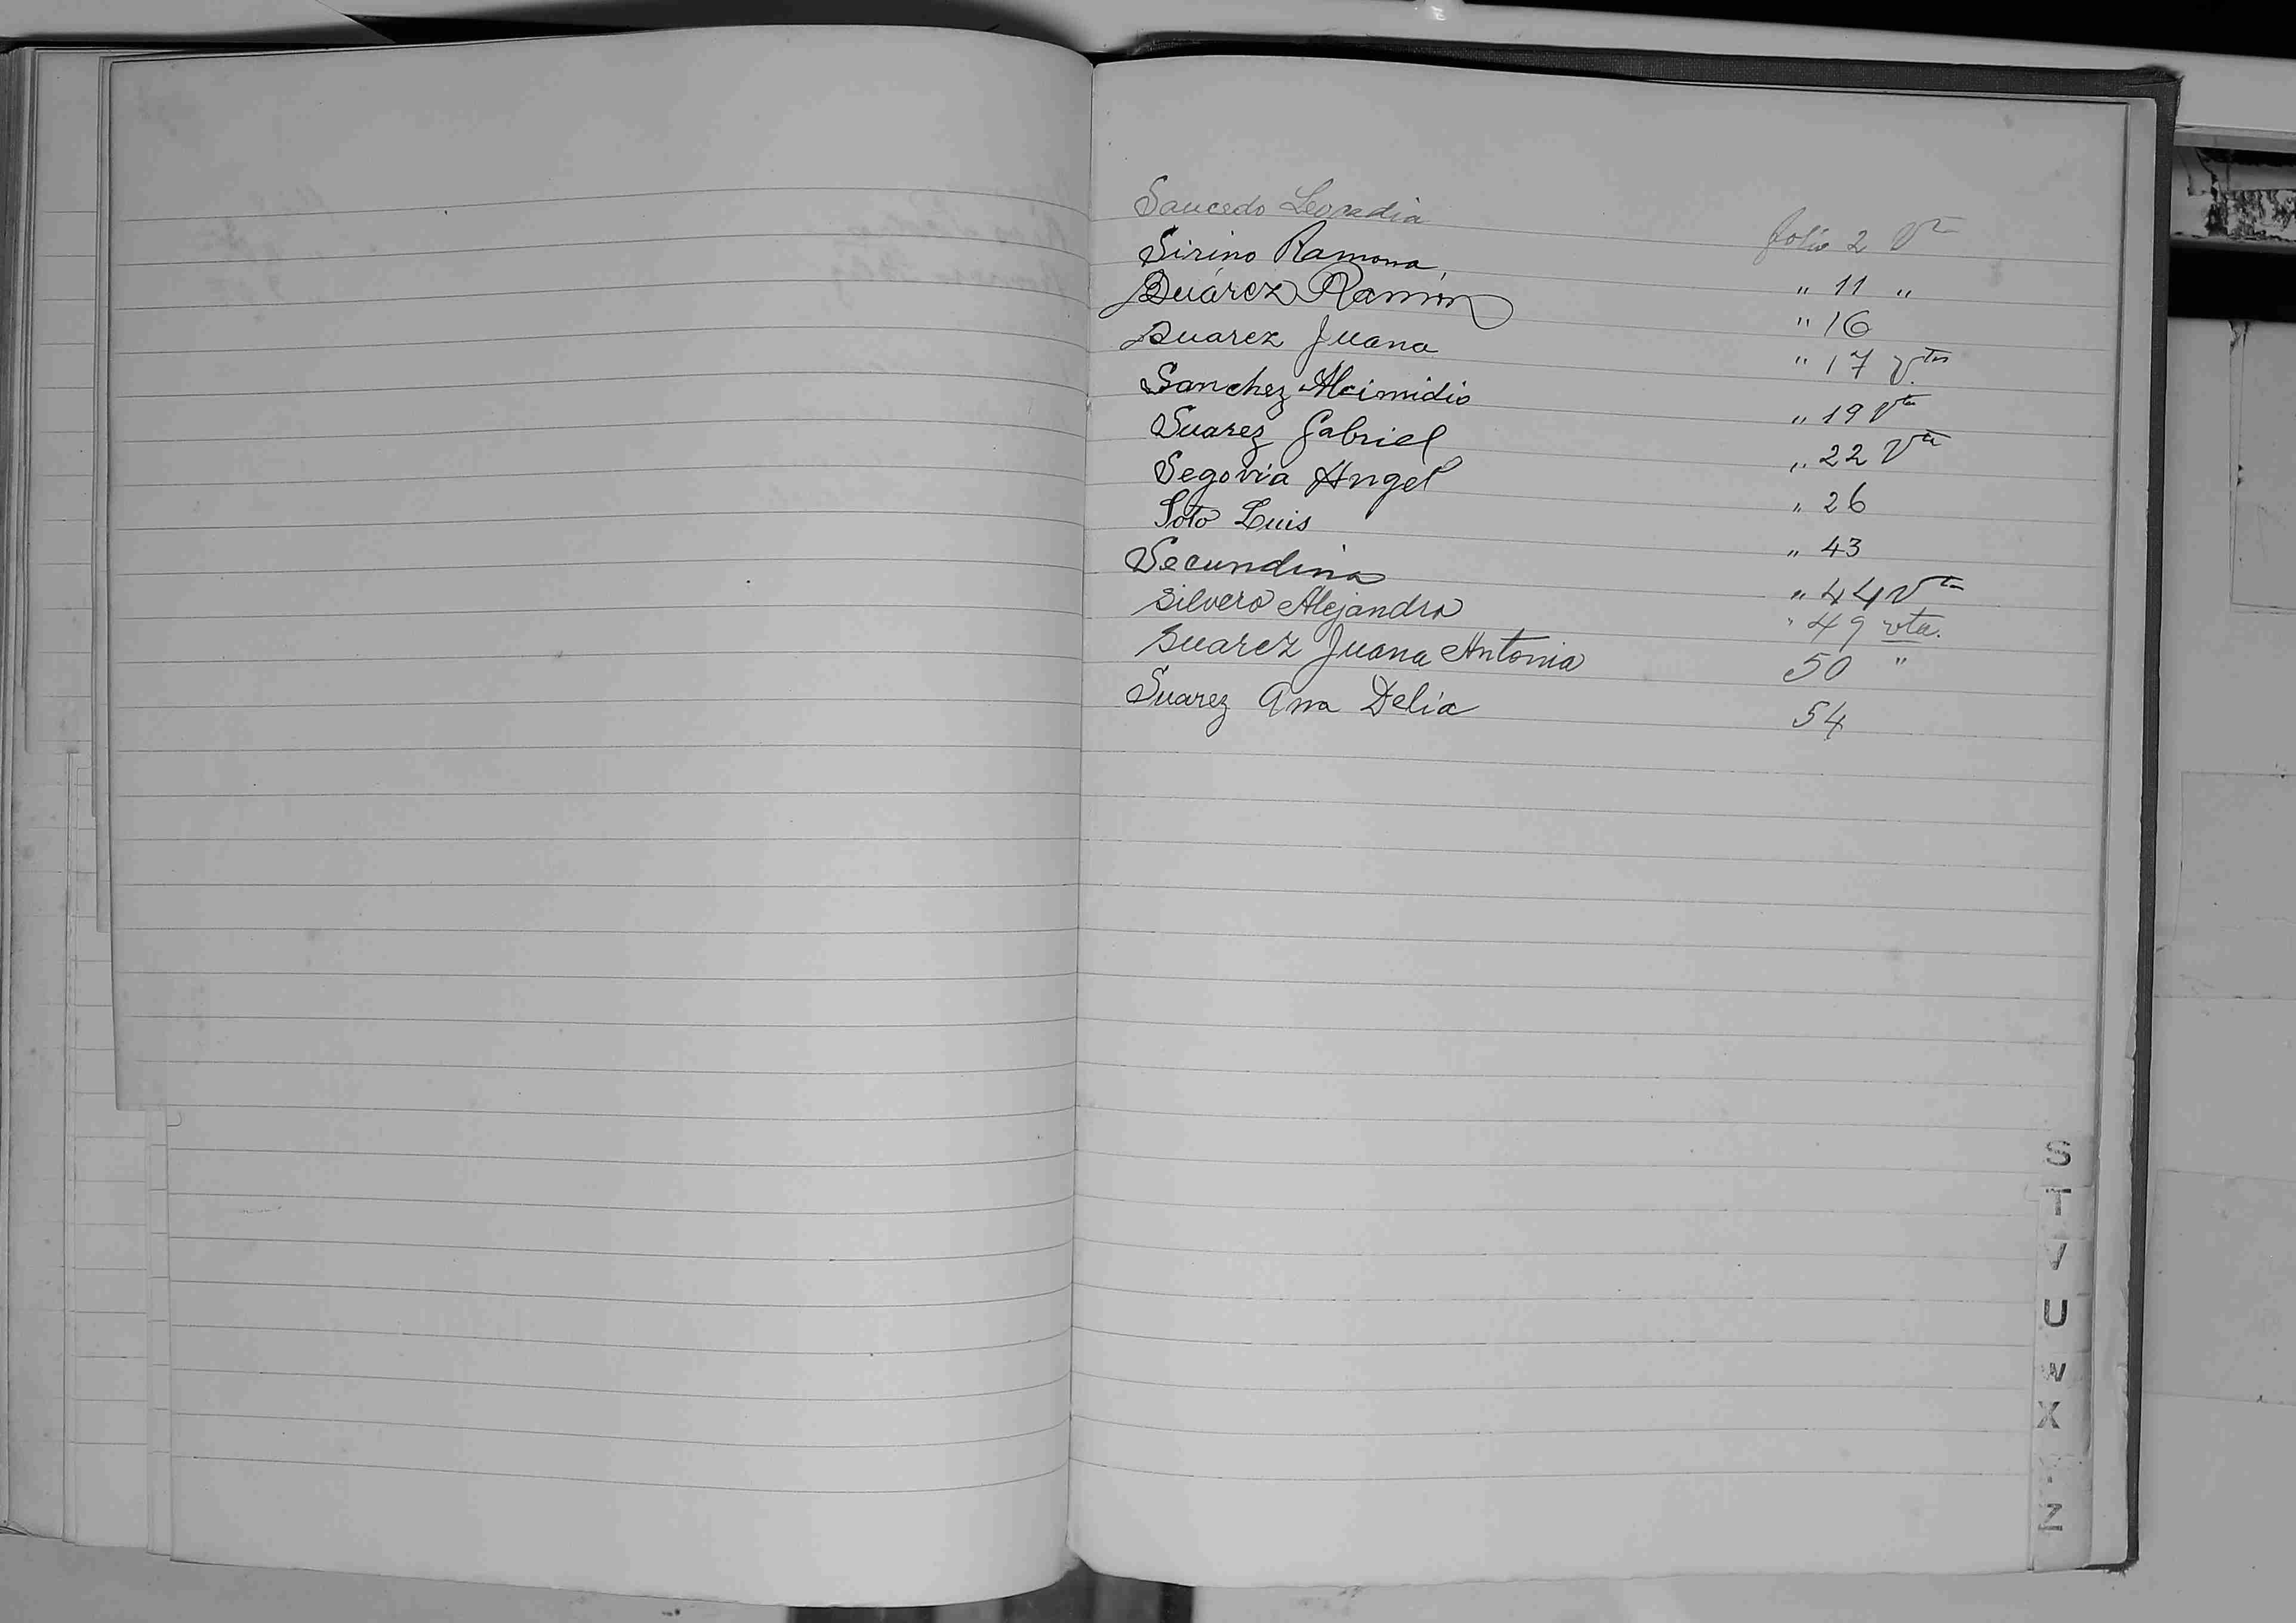 Saucedo Leocadia folio 2 Vta
Sirino Ramona, " 11 "
Suárez Ramón " 16
Suarez Juana " 17 Vta
Sanchez Alcimidio " 19 Vta
Suarez Gabriel " 22 Vta
Segovia Angel " 26
Soto Luis " 43
Secundina " 44 Vta
Silvero Alejandra " 49 vta.
Suarez Juana Antonia 50 "
Suarez Ana Delia 54
S
T
V
U
W
X
Z